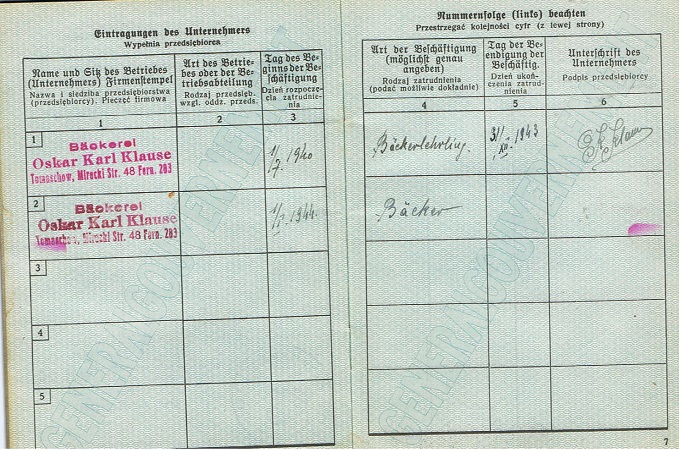 Eintragungen des Unternehmers
Wypełnia przedsiębiorca
Name und Sitz des Betriebes
(Unternehmers) Firmenstempel
Nazwa i siedziba przedsiębiorstwa
(przedsiębiorcy). Pieczęć firmowa
Art des Betrie-
bes oder der Be-
triebsabteilung
Rodzaj przedsięb.
wzgl. oddz. przeds.
Tag des Be-
ginns der Be-
schäftigung
Dzień rozpoczę-
cia zatrudnie-
nia
1
2
3
1
Bäckerei
Oskar Karl Klause
Tomaschow, Mirecki Str. 48 Fern. 203
1/7. 1940
2
Bäckerei
Oskar Karl Klause
Tomaschow, Mirecki Str. 48 Fern. 203
1/1. 1944.
3
4
5
Nummernfolge (links) beachten
Przestrzegać kolejności cyfr (z lewej strony)
Art der Beschäftigung
(möglichst genau
angeben)
Rodzaj zatrudnienia
(podać możliwie dokładnie)
Tag der Be-
endigung der
Beschäftig.
Dzień ukoń-
czenia zatrud-
nienia
Unterschrift des
Unternehmers
Podpis przedsiębiorcy
4
5
6
Bäckerlehrling.
31/XII. 1943
Bäcker
GENERALGOUVERNEMENT
7